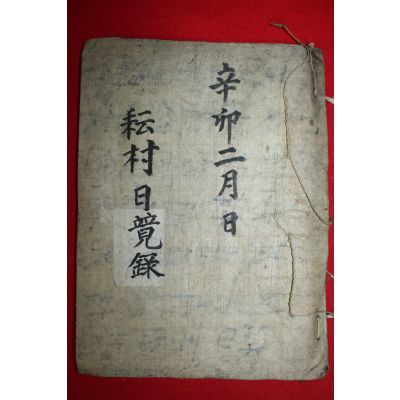 辛卯二月日
耘村日覽錄